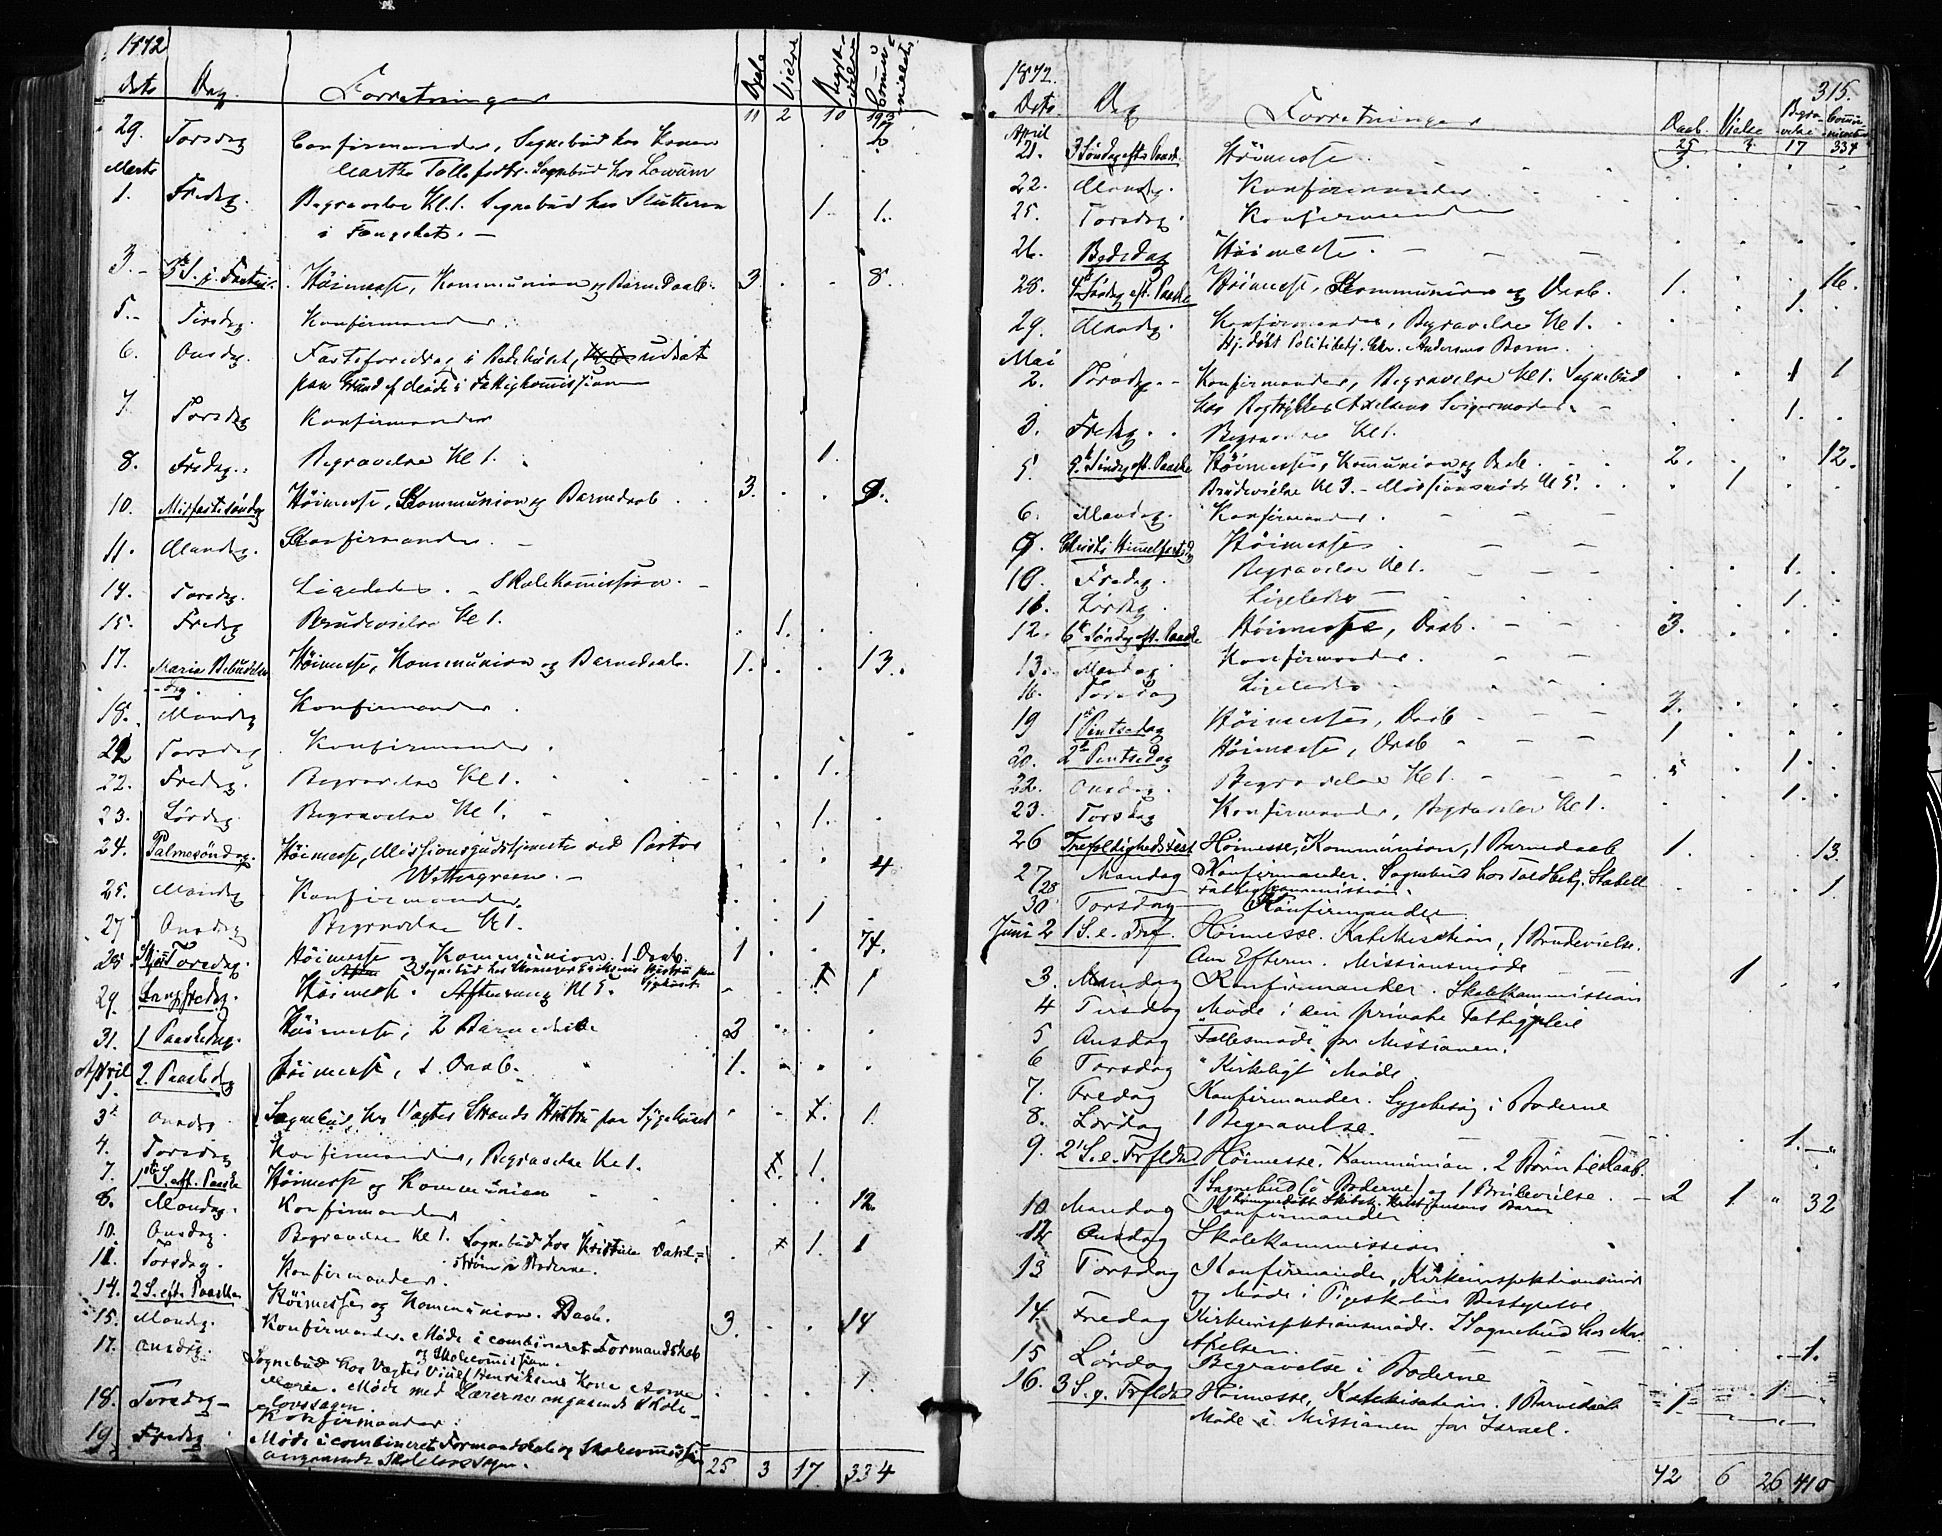 1872
Dato Dag. Forretninger Daab Vielse Begravelse Communicanter
11 2 10 193
29. Torsdag Confirmander, Sognebud hos Konen 2
Marthe Tollefsdtr. Sognebud hos
Marts
1. Fredag. Begravelse Kl. 1. Sognebud hos Slutteren 1. 1.
i Fængslet. —
3. – 3die S. i Fasten. Høimesse, Kommunion og Barnedaab. 3. . . 8.
5. – Tirsdag. Konfirmander.
6. Onsdag. Fasteforedrag i Bedehuset, udsat
paa Grund af Møde i Fattigkommissionen
7. Torsdag Konfirmander
8. Fredag. Begravelse Kl 1. 1.
10. Midfastesøndag Høimesse, Kommunion og Barnedaab . . 3. . . 9.
11. Mandag. Konfirmander. –
14. Torsdag. Ligeledes. – Skolekommission. –
15. Fredag Brudevielse Kl 1. . 1. . .
17. Maria Bebudelses Høimesse, Kommunion og Barnedaab. 1. . . 13.
-dag.
18. Mandag Konfirmander .
21 Torsdag Konfirmander .
22. Fredag. Begravelse Kl 1. . . 1. .
23. Lørdag. Begravelse Kl 1. . . 1. .
24. Palmesøndag. Høimesse, Missionsgudstjeneste ved Pastor . . . 4
Wettergreen. –
25. Mandag Konfirmander
27 Onsdag Begravelse Kl 1. . . 1
28 Skjærtorsdag. Høimesse og Kommunion. 1 Daab. 1 . . 74.
Sognebud hos Hustru paa Sygehuset
29. Langfredag. Høimesse. Aftensang Kl 5. 1
31. 1 Paaskedag. Høimesse, 2 Barnedaab 2 . . .
April
1. 2. Paaskedag Høimesse, 1. Daab. 1. . . .
3. Onsdag Sognebud hos Vægter Strands Hustru paa Sygehuset . . . 1.
4. Torsdag Konfirmander, Begravelse Kl 1. . 1.
7. 1ste S. eft. Paaske Høimesse og Kommunion . . . 12.
8. Mandag. Konfirmander
10. Onsdag. Begravelse Kl 1. Sognebud hos Kristine Dahl= 1. 1
strøm i Boderne.
11. Torsdag. Konfirmander.
14. 2 S. efter Paaske Høimesse og Kommunion. Daab. 3. . . 14
15. Mandag. Konfirmander. Møde i combineret Formandskab
og Skolecommission.
17. Onsdag. Sognebud hos Vægter Henriksens Kone Anne 1.
Marie. Møde med Lærerne angaaende Skole-
lovssagen.
18. Torsdag – Konfirmander
19 Fredag . Møde i combineret Formandskab og Skolecommission
angaaende Skolelovssagen.
25 3 17 334
1872. 315.
Dato Dag Forretninger Daab. Vielse Begravelse Communicanter
25 3. 17 334
April
21. 3 Søndag efter Paaske Høimesse . 3. . . .
22. Mandag. Konfirmander
25. Torsdag. Konfirmander
26. Bededag Høimesse. – – –
28. 4. Søndag eft. Paaske Høimesse, Kommunion og Daab. 1. . . 16.
29. Mandag. Konfirmander, Begravelse Kl 1. . . 1. .
Hj. døbt Politibetj. Chr. Andersens Barn.
Mai
2. Torsdag. – Konfirmander, Begravelse Kl 1. Sognebud . . 1 1
hos Bogtrykker Axelsens Svigermoder.
3. Fredag. . Begravelse Kl 1. 1.
5. 5. Søndag eft. Paaske Høimesse, Kommunion og Daab. 2. . . 12.
Brudevielse Kl 3. – Missionsmøde Kl 5. . . 1 . .
6. Mandag. Konfirmander. – – –
9. Christi Himmelfartsdag Høimesse . – –
10. Fredag. Begravelse Kl 1. – – . . 1. .
11. Lørdag. Ligeledes – . . 1. .
12. 6te Søndag eft. Paaske Høimesse, Daab. – – – 3. . . .
13. Mandag Konfirmander. – –
16. Torsdag Ligeledes . – –
19 1ste Pintsedag Høimesse, Daab – – – 3. . . .
20. 2den Pintsedag Høimesse, Daab – – – 1 . . .
22. Onsdag. Begravelse Kl 1. – – – . 1. .
23. Torsdag Konfirmander, Begravelse Kl 1. . . 1. .
26 Trefoldighedsfest Høimesse, Kommunion, 1 Barnedaab 1. . . 13.
27 Mandag Konfirmander. Sognebud hos Toldbetj. Stabell . . . 1
28 Fattigkommission.
30 Torsdag Konfirmander
Juni 2 1 S. e. Tref. Høimesse. Katekisation, 1 Brudevielse.
Om Efterm. Missionsmøde 1 . .
3. Mandag Konfirmander. Skolekommission
4 Tirsdag Møde i den private Fattigpleie
5 Onsdag "Fællesmøde" for Missionen.
6 Torsdag "Kirkeligt" Møde
7. Fredag Konfirmander. Sygebesøg i Boderne
8. Lørdag 1 Begravelse. 1. –
9. 2 S. e. Trefldh. Høimesse. Kommunion. 2 Børn til Daab.
1 Sognebud (i Boderne) og 1 Brudevielse. – 2 1 " 32
10. Mandag Konfirmander
12 Onsdag Skolekommission
13 Torsdag Konfirmander, Kirkeinspektionsmøde
og Møde i Pigeskolens Bestyrelse
14. Fredag Kirkeinspektionsmøde. 1 Sognebud hos Mad.
Axelsen. 1.
15 Lørdag Begravelse i Boderne
16. 3 S. e. Trefldh Høimesse, Katekisation. 1 Barnedaab 1 1
Møde i Missionen for Israel.
42 6 26 410